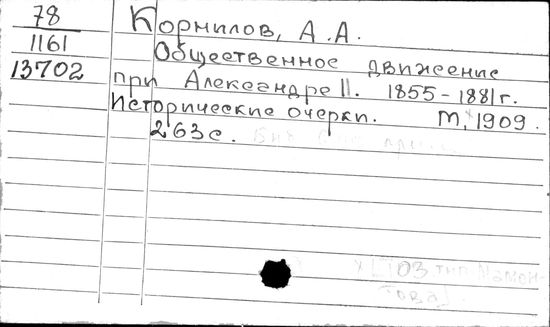 78
1161
13702
Кормилов, А.А.
Общественное движение
при Александре II. 1855-1881г.
Исторические очерки. М, 1909.
263с.